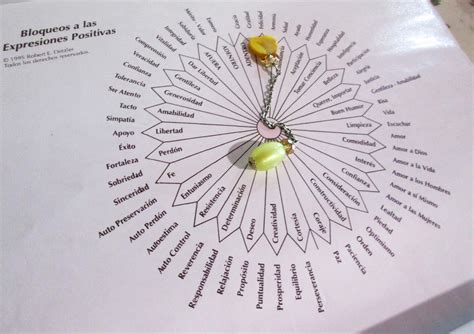 Bloqueos a las
Expresiones Positivas
© 1995 Robert E. Detzler
Todos los derechos reservados.
Gracia
Felicidad
Integridad
Seguridad
Vitalidad
Comprensión
Veracidad
Confianza
Tolerancia
Ser Atento
Tacto
Simpatía
Apoyo
Éxito
Fortaleza
Sobriedad
Sinceridad
Auto Preservación
Auto Perdón
Autoestima
Auto Control
Reverencia
Responsabilidad
Relajación
Propósito
Puntualidad
Prosperidad
Equilibrio
Perseverancia
Paz
Paciencia
Optimismo
Piedad
Lealtad
Amor a las Mujeres
Amor a sí Mismo
Amor a los Hombres
Amor a la Vida
Amor a Dios
Amor
Escuchar
Vida
Risa
Gentileza - Amabilidad
Justicia
AFUERA
ADENTRO
Dar Libertad
Gentileza
Generosidad
Amabilidad
Libertad
Perdón
Fe
Entusiasmo
Resistencia
Determinación
Deseo
Creatividad
Cortesía
Coraje
Constructividad
Consideración
Confianza
Interés
Comodidad
Limpieza
Buen Humor
Querer, Importar
Belleza
Tomar Conciencia